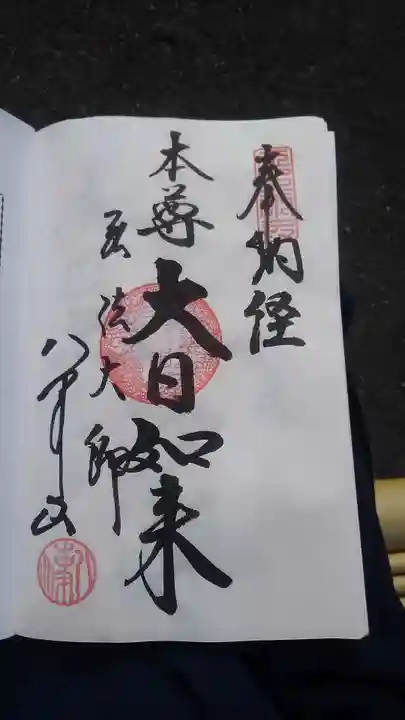 奉納経
本尊 大日如来
弘法大師
八葉山